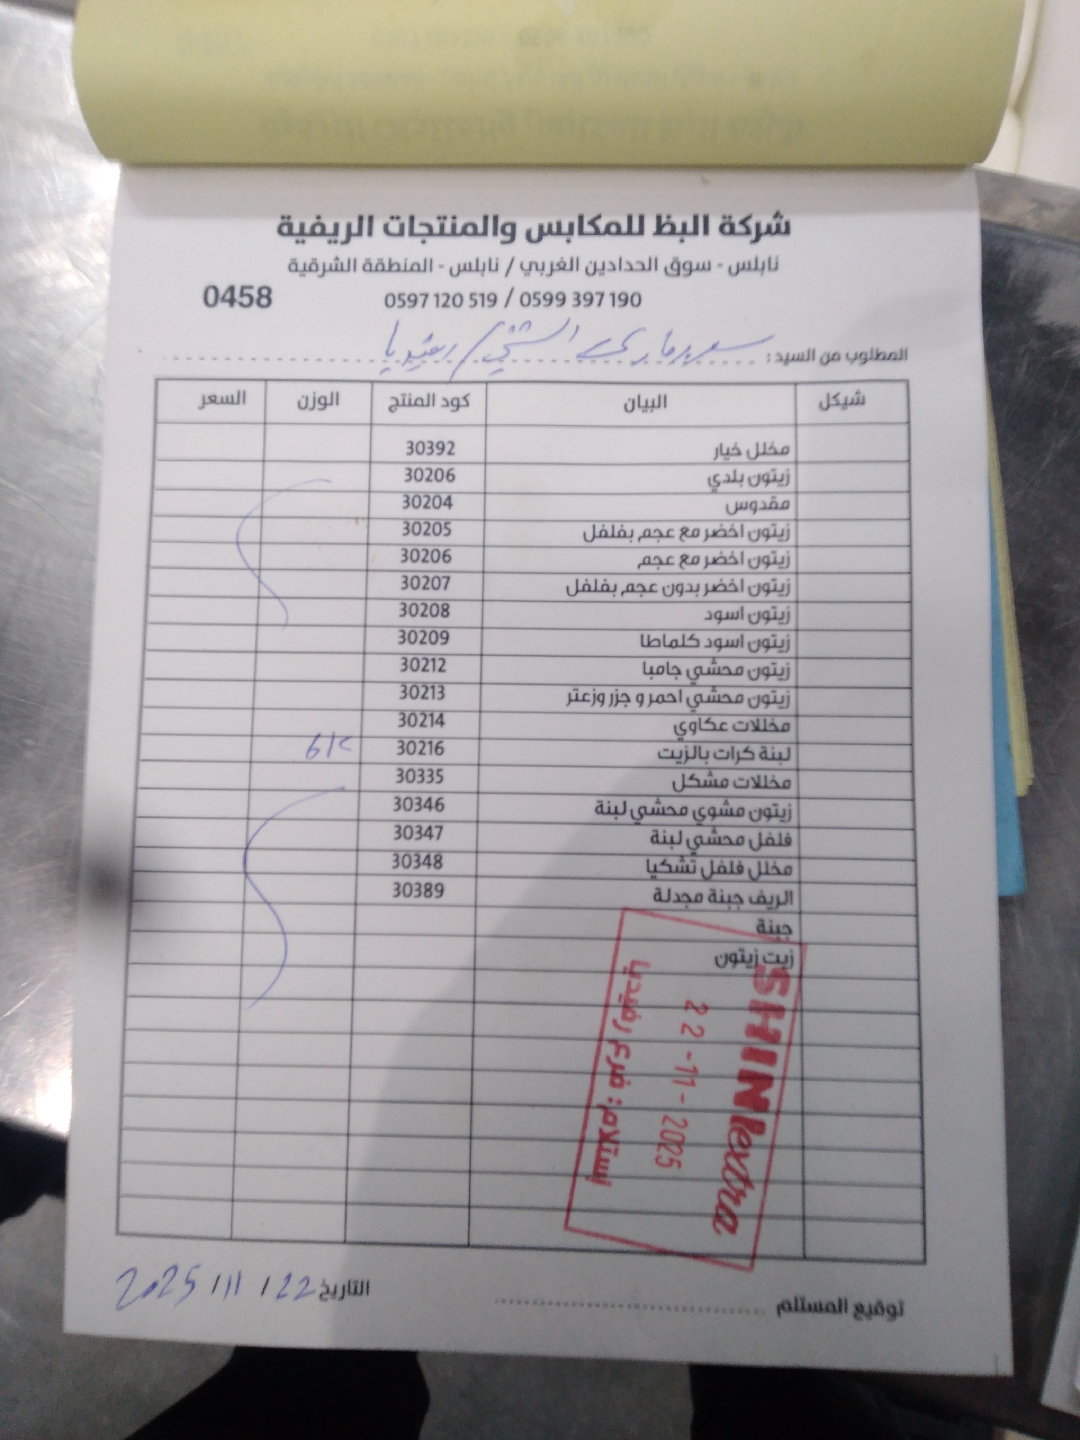 شركة البظ للمكابس والمنتجات الريفية
نابلس - سوق الحدادين الغربي / نابلس - المنطقة الشرقية
0597 120 519 / 0599 397 190
0458
المطلوب من السيد: سوبرماركت الشني / رفيديا
شيكل البيان كود المنتج الوزن السعر
مخلل خيار 30392
زيتون بلدي 30206
مقدوس 30204
زيتون اخضر مع عجم بفلفل 30205
زيتون اخضر مع عجم 30206
زيتون اخضر بدون عجم بفلفل 30207
زيتون اسود 30208
زيتون اسود كلماطا 30209
زيتون محشي جامبا 30212
زيتون محشي احمر و جزر وزعتر 30213
مخللات عكاوي 30214
لبنة كرات بالزيت 30216
مخللات مشكل 30335
زيتون مشوي محشي لبنة 30346
فلفل محشي لبنة 30347
مخلل فلفل تشكيا 30348
الريف جبنة مجدلة 30389
جبنة
زيت زيتون
SHINI extra
22-11-2025
إستلام: فرع رفيديا
التاريخ 22 / 11 / 2025
توقيع المستلم